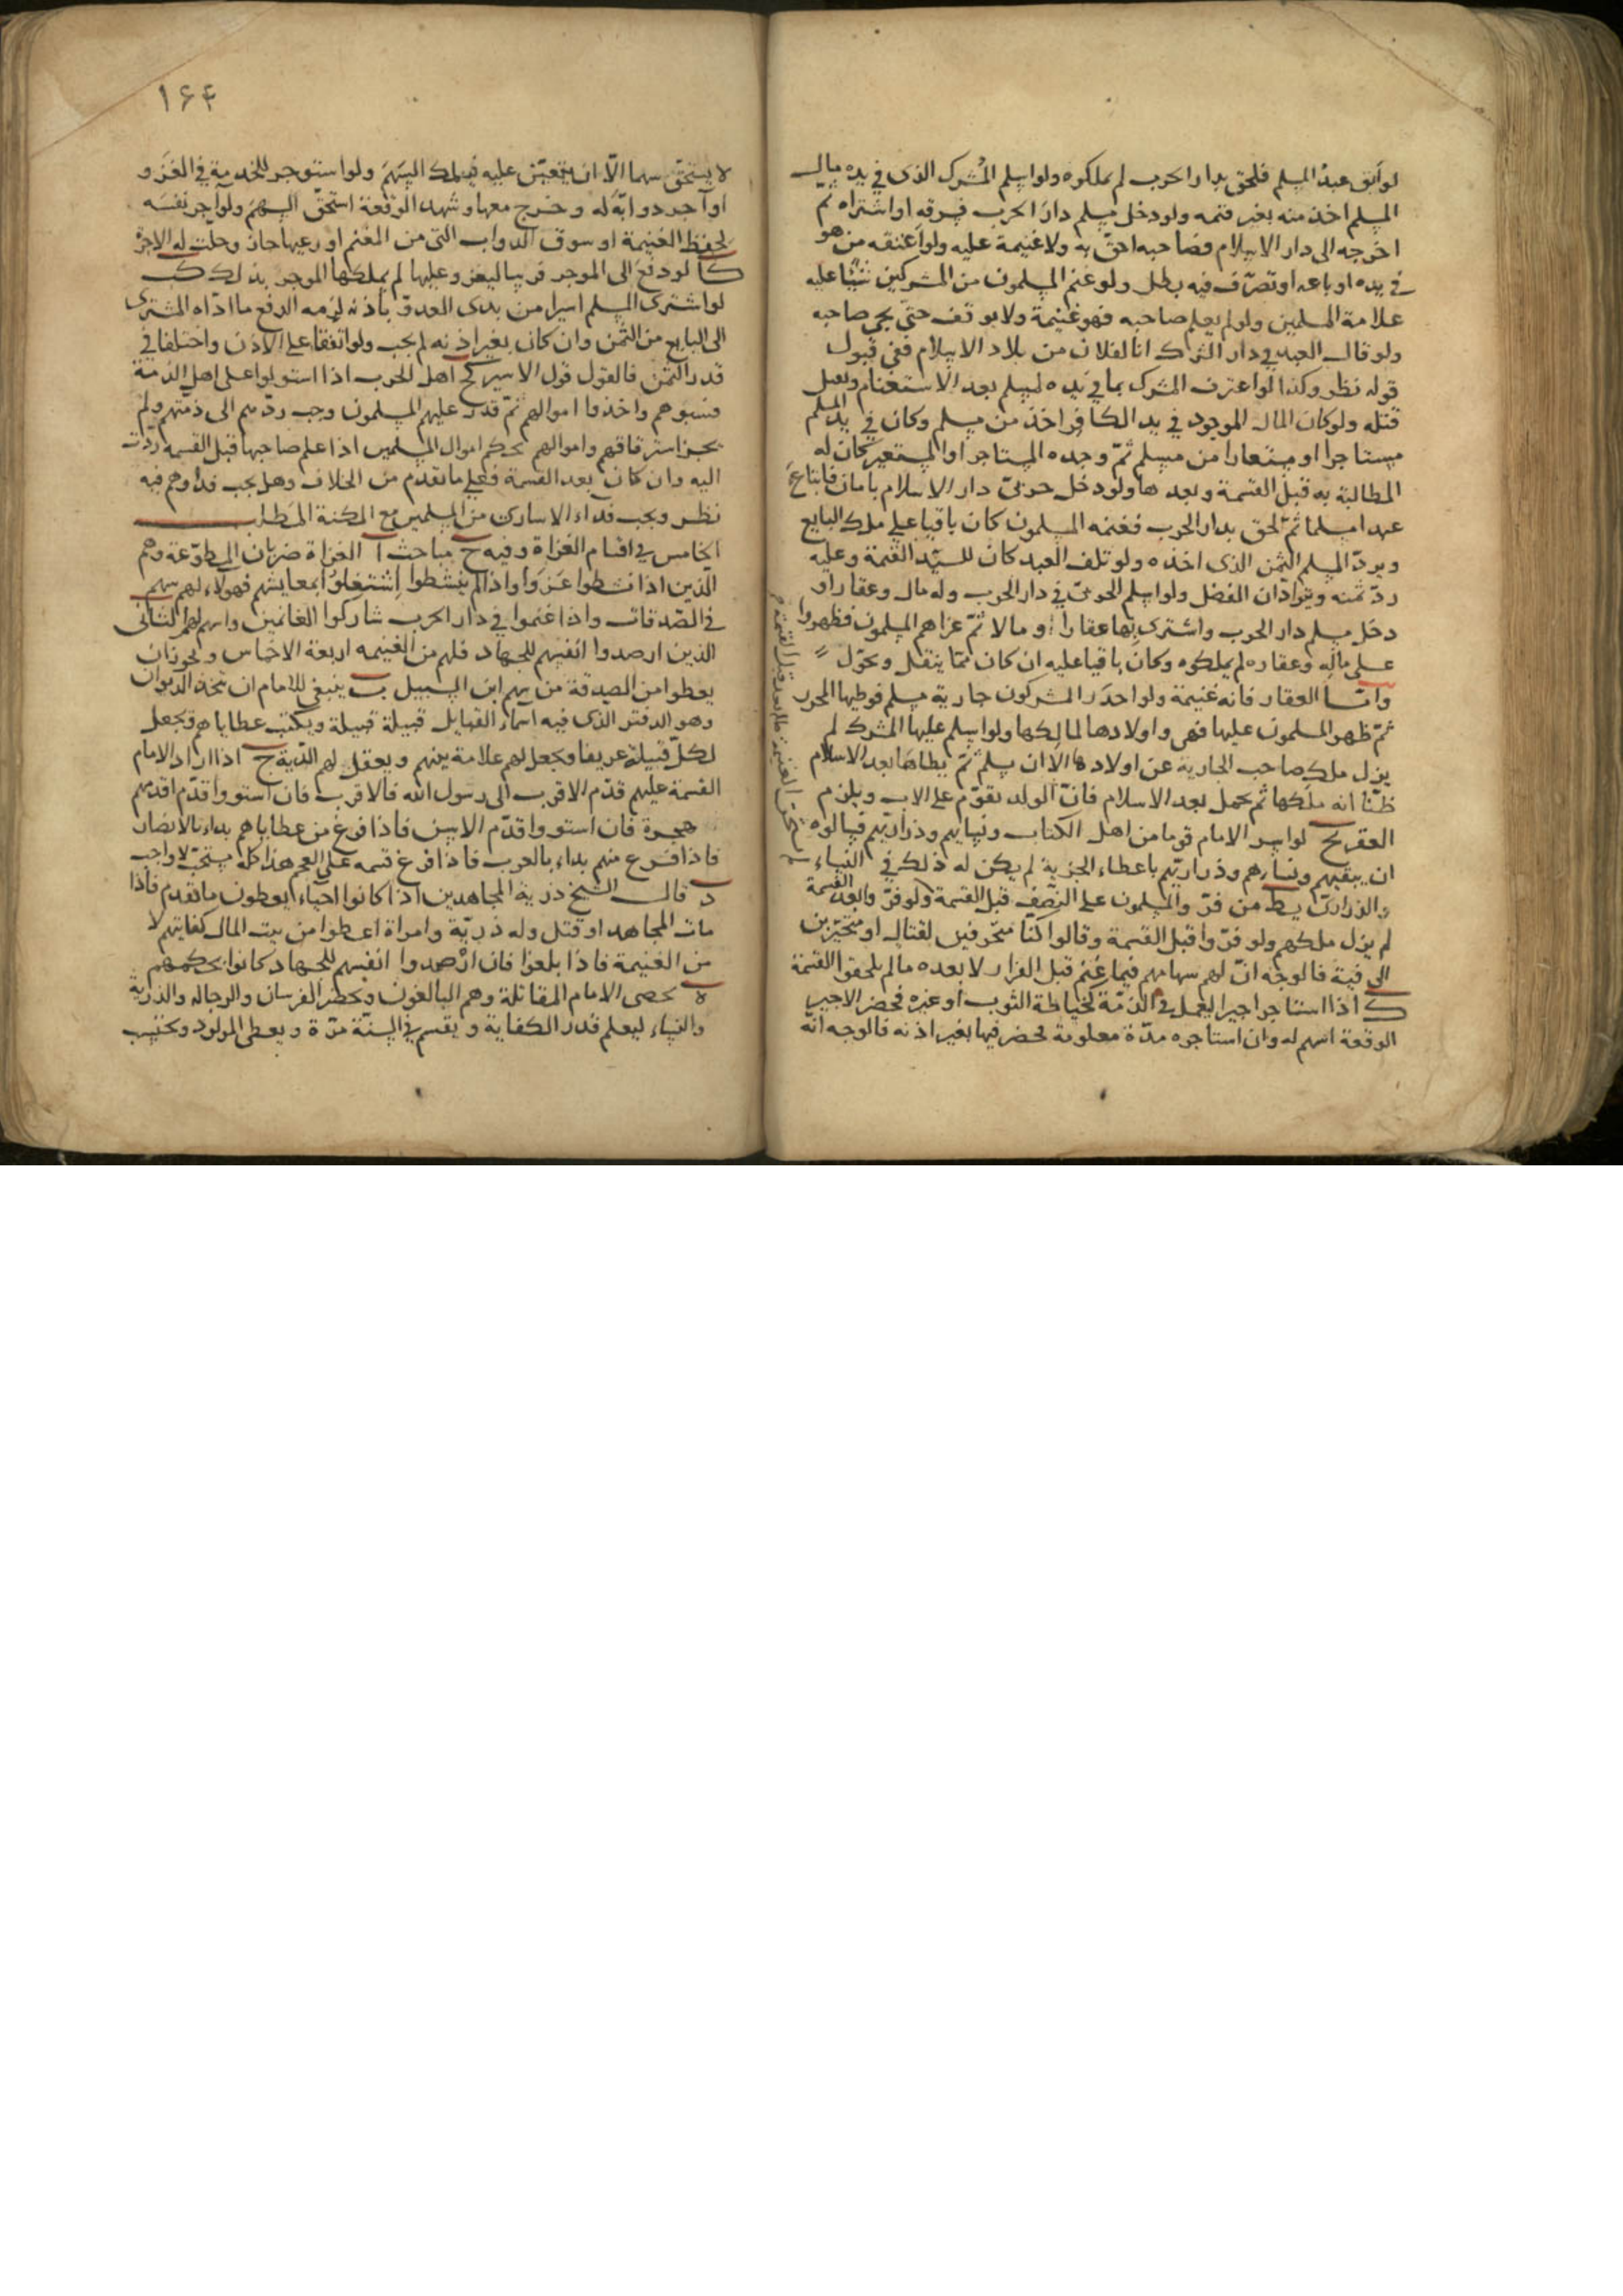 لو أبق عبد المسلم فلحق بدار الحرب لم يملكوه ولو اسلم المشرك الذى فى يده مال
المسلم اخذ منه بغير قيمه ولو دخل مسلم دار الحرب فسرقه او اشتراه ثم
اخرجه الى دار الاسلام فصاحبه احق به ولا غنيمة عليه ولو اعتقه من هو
فى يده او باعه او تصرف فيه بطل ولو غنم المسلمون من المشركين شيئا عليه
علامة المسلمين ولو لم يعلم صاحبه فهو غنيمة ولا يوقف حتى يجى صاحبه
ولو قال العبد فى دار الشرك انا لفلان من بلاد الاسلام ففى قبول
قوله نظر وكذا لو اعترف المشرك بما فى يده لمسلم بعد الاستغنام وتعمل
قتله ولو كان المال الموجود فى يد الكافر اخذ من مسلم وكان فى يد المسلم
مستاجرا او مستعارا من مسلم ثم وجده المستاجر او المستعير كان له
المطالبة به قبل القسمة وبعدها ولو دخل حربى دار الاسلام بامان فابتاع
عبدا مسلما ثم لحق بدار الحرب فغنمه المسلمون كان باقيا على ملك البايع
ويرد المسلم الثمن الذى اخذه ولو تلف العبد كان للسيد القيمة وعليه
رد ثمنه ويترادان الفضل ولو اسلم الحربى فى دار الحرب وله مال وعقار او
دخل مسلم دار الحرب واشترى بها عقارا او مالا ثم غزاهم المسلمون فظهروا
على ماله وعقاره لم يملكوه وكان باقيا عليه ان كان مما ينقل ويحول
واما العقار فانه غنيمة ولو اخذ المشركون جارية مسلم فوطيها الحربى
ثم ظهر المسلمون عليها فهى واولادها لمالكها ولو اسلم عليها المشرك لم
يزل ملك صاحب الجارية عن اولادها الا ان يسلم ثم يطاها بعد الاسلام
ظنا انه ملكها ثم يحمل بعد الاسلام فان الولد يقوم على الاب ويلزم
العقر يح لو اسر الامام قوما من اهل الكتاب ونسايهم وذراريهم فسالوه
ان يبقيهم ونساءهم وذراريهم باعطاء الجزية لم يكن له ذلك فى النساء
والذرارى يط من فر والمسلمون على النصف قبل القسمة ولو فر وابعد القسمة
لم يزل ملكهم ولو فروا قبل القسمة وقالوا كنا متحرفين لقتال او متحيزين
الى فية فالوجه ان لهم سهامهم فيما غنم قبل الفرار لا بعده ما لم يلحقوا القسمة
ك اذا استاجر اجيرا ليعمل فى الذمة كخياطة الثوب او غيره فحضر الاجير
الوقعة اسهم له وان استاجره مدة معلومة فحضر فيها بغير اذنه فالوجه انه
١۶۴
لا يستحق سهما الا ان يتعين عليه فيملك السهم ولو استوجر للخدمة فى الغزو
او آجر دوابه له وخرج معها وشهد الوقعة استحق السهم ولو آجر نفسه
لحفظ الغنيمة او سوق الدواب التى من المغنم او رعيها جاز وحلت له الاجرة
كا لو دفع الى الموجر فرسا ليغزو عليها لم يملكها الموجر بذلك كب
لو اشترى المسلم اسيرا من يدى العدو باذنه لزمه الدفع ما اداه المشترى
الى البايع من الثمن وان كان بغير اذنه لم يجب ولو اتفقا على الاذن واختلفا فى
قدر الثمن فالقول قول الاسير كج اهل الحرب اذا استولوا على اهل الذمة
فسبوهم واخذوا اموالهم ثم قدر عليهم المسلمون وجب ردهم الى ذمتهم ولم
يجز استرقاقهم واموالهم بحكم اموال المسلمين اذا علم صاحبها قبل القسمة ردت
اليه وان كان بعد القسمة فعلى ما تقدم من الخلاف وهل يجب فداوهم فيه
نظر ويجب فداء الاسارى من المسلمين مع المكنة المطلب
الخامس فى اقسام الغزاة وفيه ح مباحث ا الغزاة ضربان المطوعة وهم
الذين اذا نشطوا غزوا واذا لم ينشطوا اشتغلوا بمعايشهم فهولاء لهم سهم
فى الصدقات واذا غنموا فى دار الحرب شاركوا الغانمين واسهم لهم الثانى
الذين ارصدوا انفسهم للجهاد فلهم من الغنيمه اربعة الاخماس ويجوز ان
يعطوا من الصدقة من سهم ابن السبيل ب ينبغى للامام ان يتخذ الديوان
وهو الدفتر الذى فيه اسماء القبايل قبيلة قبيلة ويكتب عطاياهم ويجعل
لكل قبيلة عريفا ويجعل لهم علامة بينهم ويعقل لهم الدية ج اذا اراد الامام
القسمة عليهم قدم الاقرب الى رسول الله فالاقرب فان استووا قدم اقدمهم
هجرة فان استووا قدم الاسن فاذا فرغ من عطاياهم بداء بالانصار
فاذا فرغ منهم بداء بالعرب فاذا فرغ قسمه على العجم هذا كله مستحب لا واجب
د قال الشيخ ذرية المجاهدين اذا كانوا احياء يعطون ما تقدم فاذا
مات المجاهد او قتل وله ذرية وامراة اعطوا من بيت المال كفايتهم لا
من الغنيمة فاذا بلغوا فان ارصدوا انفسهم للجهاد كانوا بحكمهم
ه يحصى الامام المقاتلة وهم البالغون ويحضر الفرسان والرجاله والذرية
والنساء ليعلم قدر الكفاية ويقسم فى السنة مرة ويعطى المولود ويحتسب